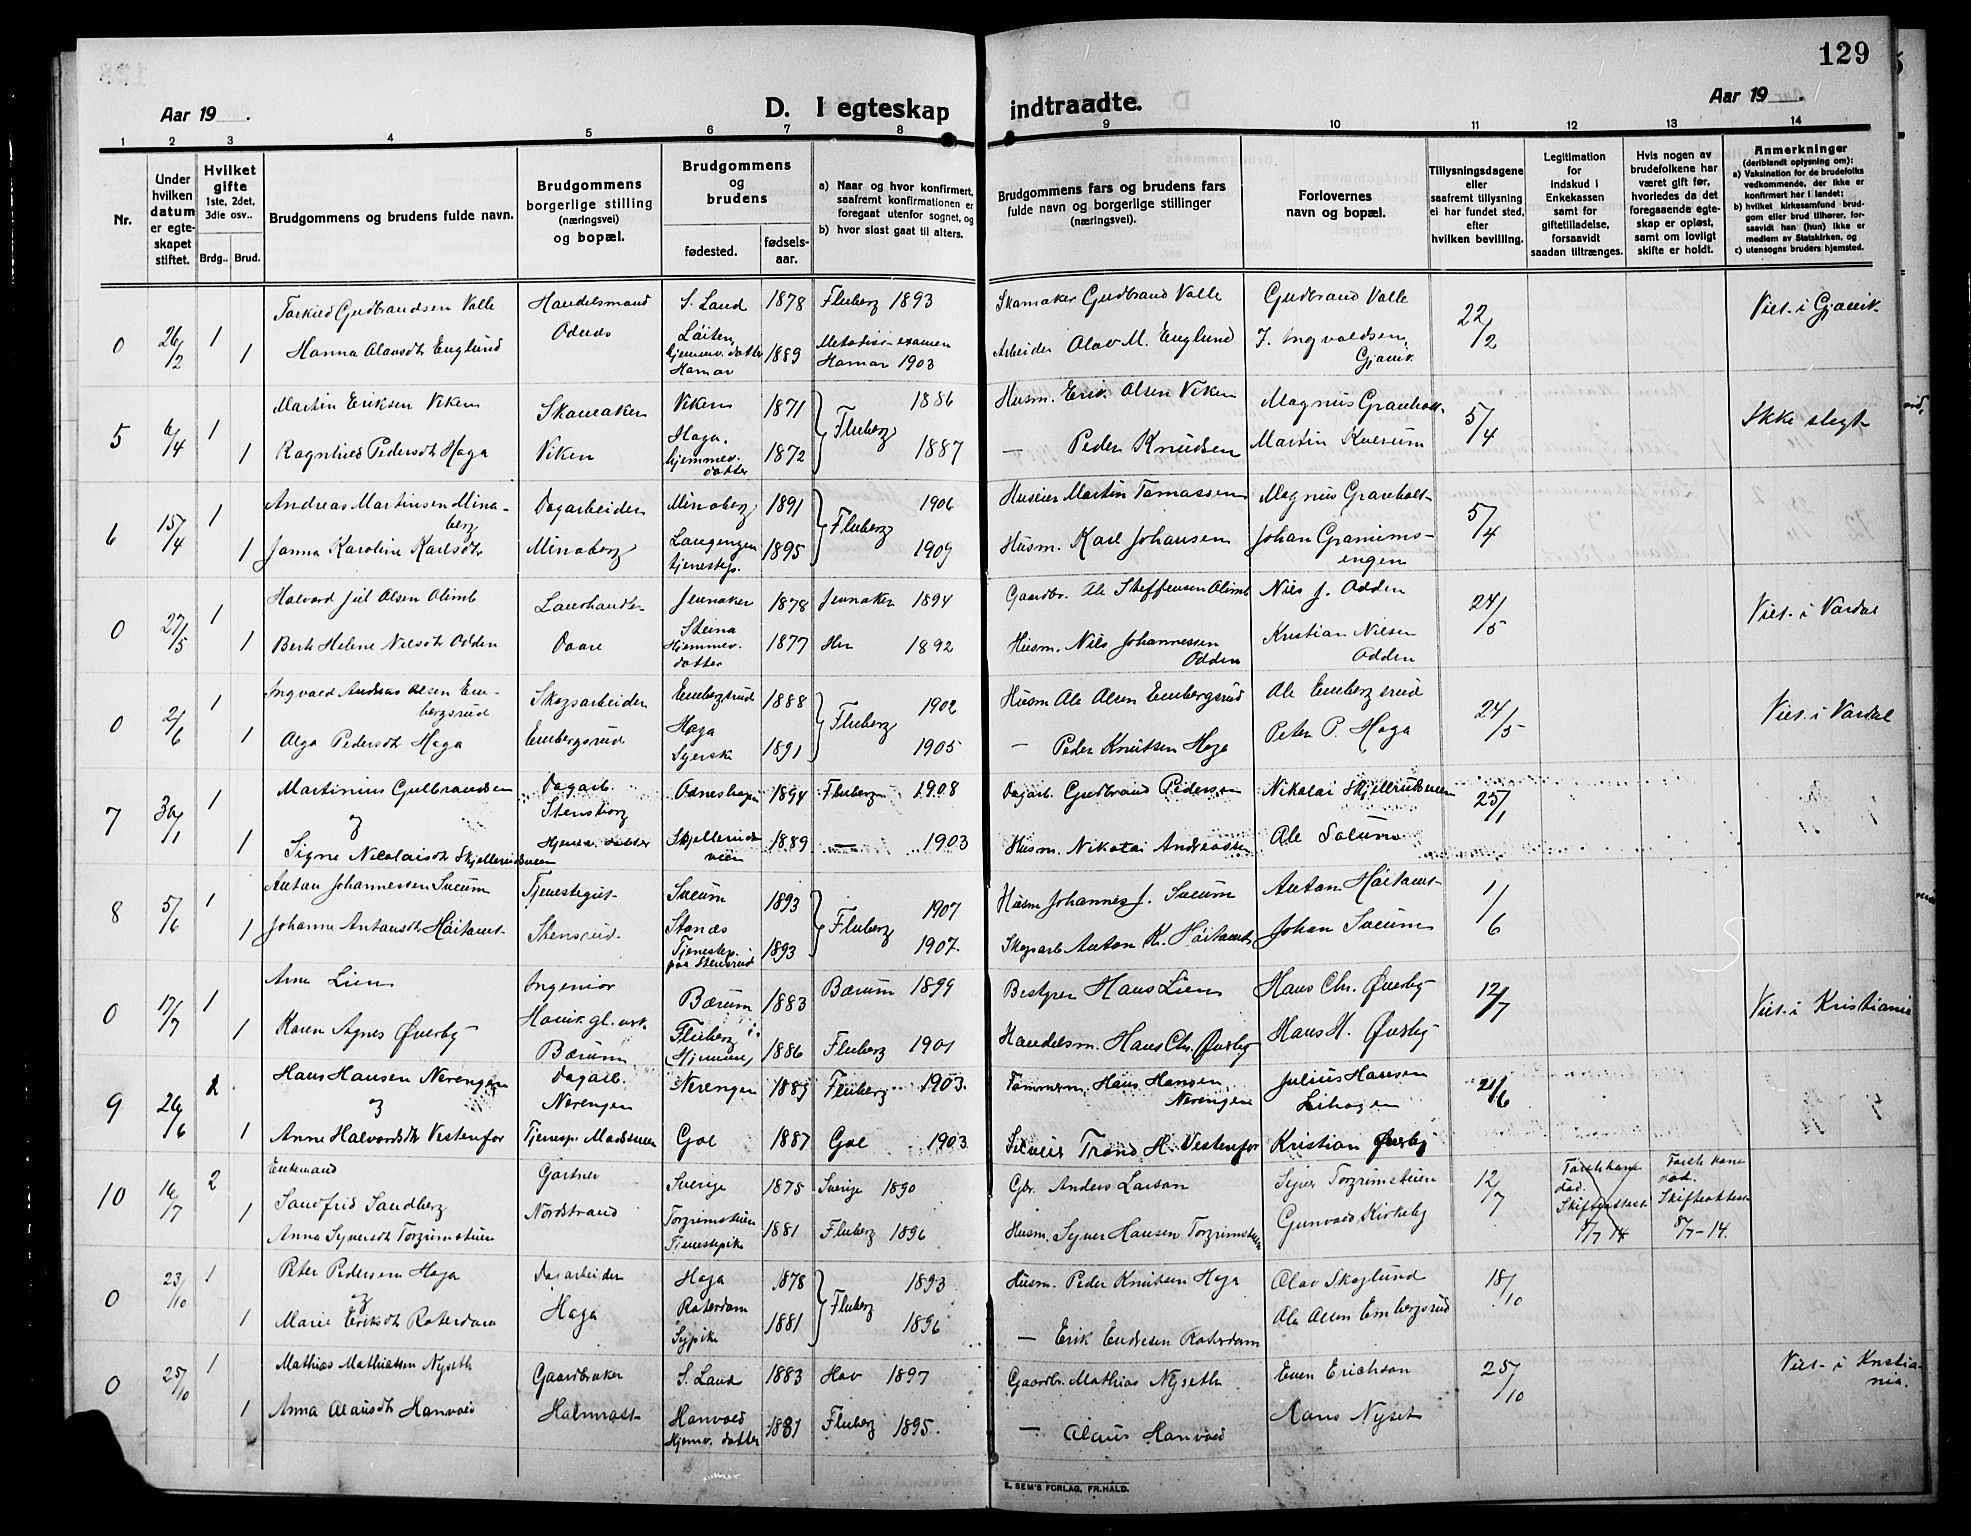 129
Aar 19
D. I egteskap indtraadte.
Aar 19
1 2 3 4 5 6 7 8 9 10 11 12 13 14
Nr.
Under hvilken datum er egteskapet stiftet.
Hvilket gifte 1ste, 2det, 3die osv..
Brdg.. Brud.
Brudgommens og brudens fulde navn.
Brudgommens borgerlige stilling (næringsvei) og bopæl.
Brudgommens og brudens
fødested.
fødsels-aar.
a) Naar og hvor konfirmert, saafremt konfirmationen er foregaat utenfor sognet, og
b) hvor sidst gaat til alters.
Brudgommens fars og brudens fars fulde navn og borgerlige stillinger (næringsvei).
Forlovernes navn og bopæl.
Tillysningsdagene eller saafremt tillysning ei har fundet sted, efter hvilken bevilling.
Legitimation for indskud i Enkekassen samt for giftetilladelse, forsaavidt saadan tiltrænges.
Hvis nogen av brudefolkene har været gift før, hvorledes da det foregaaende egteskap er opløst, samt om lovligt skifte er holdt.
Anmerkninger (deriblandt oplysning om):
a) Vaksination for de brudefolks vedkommende, der ikke er konfirmert her i landet;
b) hvilket kirkesamfund brudgom eller brud tilhører, forsaavidt han (hun) ikke er medlem av Statskirken, og
c) utensogns bruders hjemsted.
0 26/2 1 Gudbrandsen Valle Handelsmand S. Land 1878 Fluberg 1893 Skomaker Gudbrand Valle Gudbrand Valle 22/2 Viet. i Gjøvik
1 Hanna Olavsdt Englund Odnes Løiten hjemmev. datter Hamar 1889 Metodist-examen Hamar 1903 Arbeider Olav M. Englund J. Ingvaldsen, Gjøvik.
5 6/4 1 Martin Eriksen Viken Skomaker Viken 1871 Fluberg 1886 Husm. Erik Olsen Viken Magnus Granholt 5/4 Ikke slegt
1 Ragnhild Pedersdt Haga Viken Haga. hjemmev. datter 1872 1887 — Peder Knudsen Martin Kverum
6 15/4 1 Andreas Martinsen Minaberg Dagarbeider Minaberg 1891 Fluberg 1906 Huseier Martin Tomassen Magnus Granholt 5/4
1 Janna Karoline Karlsdt Minaberg Langengen tjenestep. 1895 1909 Husm. Karl Johansen Johan Granumsengen
0 27/5 1 Halvard Juel Olsen Olimb Landhandler Jevnaker 1878 Jevnaker 1894 Gaardbr. Ole Steffensen Olimb Nils J. Odden 24/5 Viet. i Vardal
1 Berte Helene Nilsdt Odden Steina Hjemmev. datter 1877 Her 1892 Husm. Nils Johannessen Odden Kristian Nilsen Odden
0 2/6 1 Ingvald Andreas Olsen Embergsrud Skogsarbeider Embergsrud 1888 Fluberg 1902 Husm Ole Olsen Embergsrud Ole Embergsrud 24/5 Viet. i Vardal
1 Olga Pedersdt Haga Embergsrud Haga Syerske 1891 1905 — Peder Knutsen Haga Peter P. Haga
7 30/1 1 Martinius Gulbrandsen Dagarb. Stensborg Odneshagen 1894 Fluberg 1908 Dagarb. Gudbrand Pedersen Nikolai Skjellerudsveen 25/1
og
1 Signe Nicolaisdt Skjellerudsveen Hjemv. datter 1889 — 1903 Husm. Nikolai Andreassen Ole Solum
8 5/6 1 Anton Johannessen Sveum Tjenestegut Sveum 1893 Fluberg 1907 Husm Johannes J. Sveum Anton Høitomt 1/6
1 Johanne Antonsdt Høitomt Stensrud. Stenes Tjenestep. paa Stensrud 1893 1907. Skogsarb Anton K. Høitomt Johan Sveum
0 17/7 1 Arne Lien Ingeniør Bærum 1883 Bærum 1899 Bestyrer Hans Lien Hans Chr. Øverby 12/7 Viet. i Kristiania
1 Karen Agnes Øverby Høvik gl. verk. Bærum Fluberg Hjemme 1886 Fluberg 1901 Handelsm. Hans Chr. Øverby Hans H. Øverby
9 26/6 1 Hans Hansen Nerengen Dagarb. Nerengen Nerengen 1885 Fluberg 1903. Tømmerm. Hans Hansen Nerengen Julius Hansen Lihagen 21/6
og
1 Anne Halvordsdt Vestenfor Tjenesp. Gol 1887 Gol 1903 Trond H. Vestenfor Kristian Øverby
10 16/7 2 Enkemand Gartner Sverige 1875 Sverige 1890 Gbr. Anders Larson Syver Torgrimsteien 12/7 Første kone død. Skifteattest 8/7 14 Første kone død. Skifteattest 8/7-14.
1 Sandfrid Sandberg Nordstrand
Anna Syversdt Torgrimsteien Tjenestepike 1881 Fluberg 1896 Husm. Syver Hansen Torgrimsteien Gunvald Kirkeby
0 23/10 1 Peter Pedersen Haga Dagarbeider Haga 1878 Fluberg 1893 Husm. Peder Knutsen Haga Olav Skoglund 18/10
og
1 Marie Eriksdt Roterdam Haga Roterdam Sypike 1881 1896 — Erik Endresen Roterdam Ole Olsen Embergsrud
0 25/10 1 Mathias Mathiassen Nyseth Gaardbruker S. Land 1883 Hov 1897 Gaardbr. Mathias Nyseth Even Erichson 25/10 Viet. i Kristiania.
1 Anna Olausdt Hanvold Halmrast Hanvold Hjemv. datter 1881 Fluberg 1895. — Olaus Hanvold Hans Nyset
E. SEM'S FORLAG, FR.HALD.